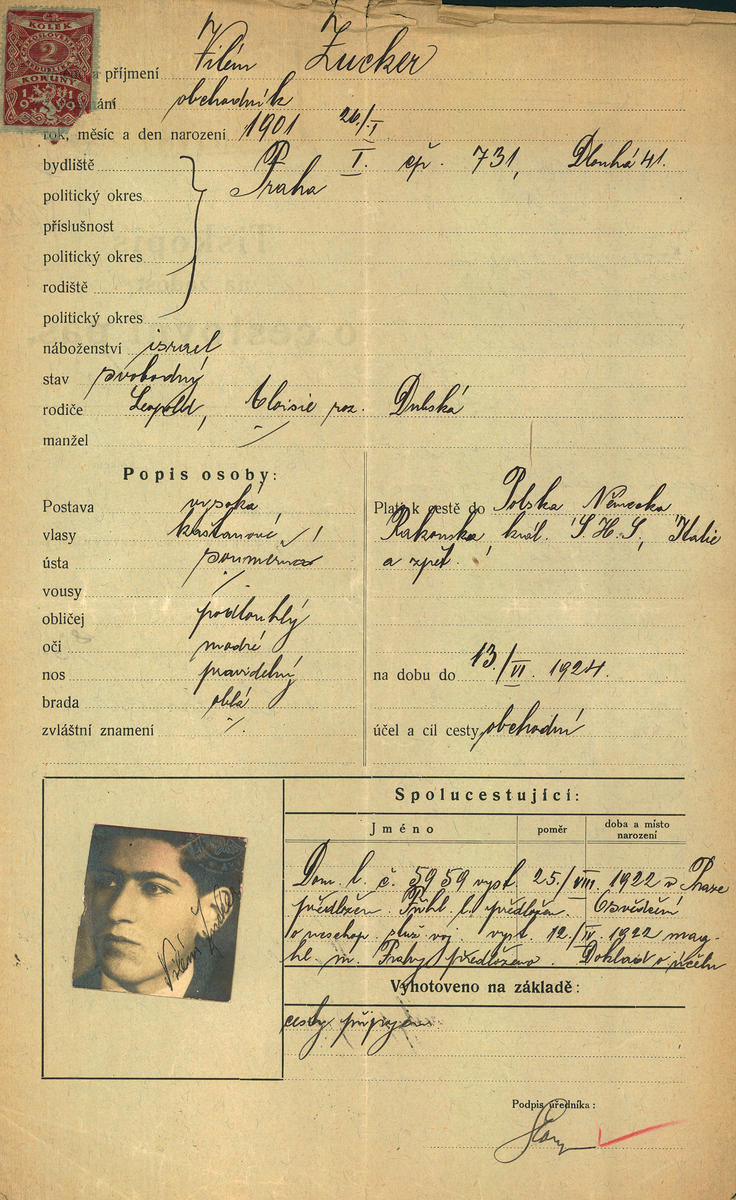 KOLEK
2
KORUNY
1919
a příjmení Vilém Zucker
obchodník
rok, měsíc a den narození 1901 26/I
bydliště Praha I. čp. 731, Dlouhá 41.
politický okres
příslušnost
politický okres
rodiště
politický okres
náboženství israel
stav svobodný
rodiče Leopold, Aloisie roz. Dubská
manžel
Popis osoby:
Postava vysoká
vlasy kaštanové
ústa souměrná
vousy
obličej podlouhlý
oči modré
nos pravidelný
brada oblá
zvláštní znamení
Platí k cestě do Polska Německa
Rakouska, král. S.H.S, Italie
a zpět.
na dobu do 13./VI. 1924.
účel a cíl cesty obchodní
Spolucestující:
Jméno poměr doba a místo narození
Dom. l. č. 5959 vyst. 25./VIII. 1922 v Praze
předložen. Přihl. l. předložen. Osvědčení
o neschop. služ. voj. vyst. 12./IV. 1922 mag.
hl. m. Prahy předloženo. Doklad o účelu
Vyhotoveno na základě:
cesty připojen
Vilém Zucker
Podpis úředníka: